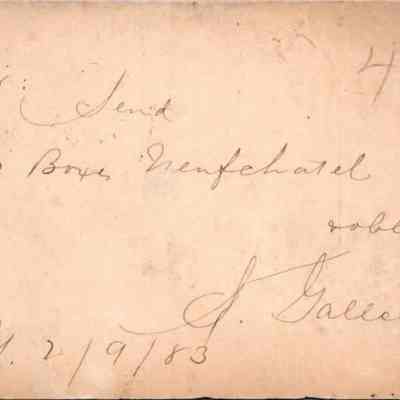 4
Send
Boxes Neufchatel
J. Galle
2/9/83